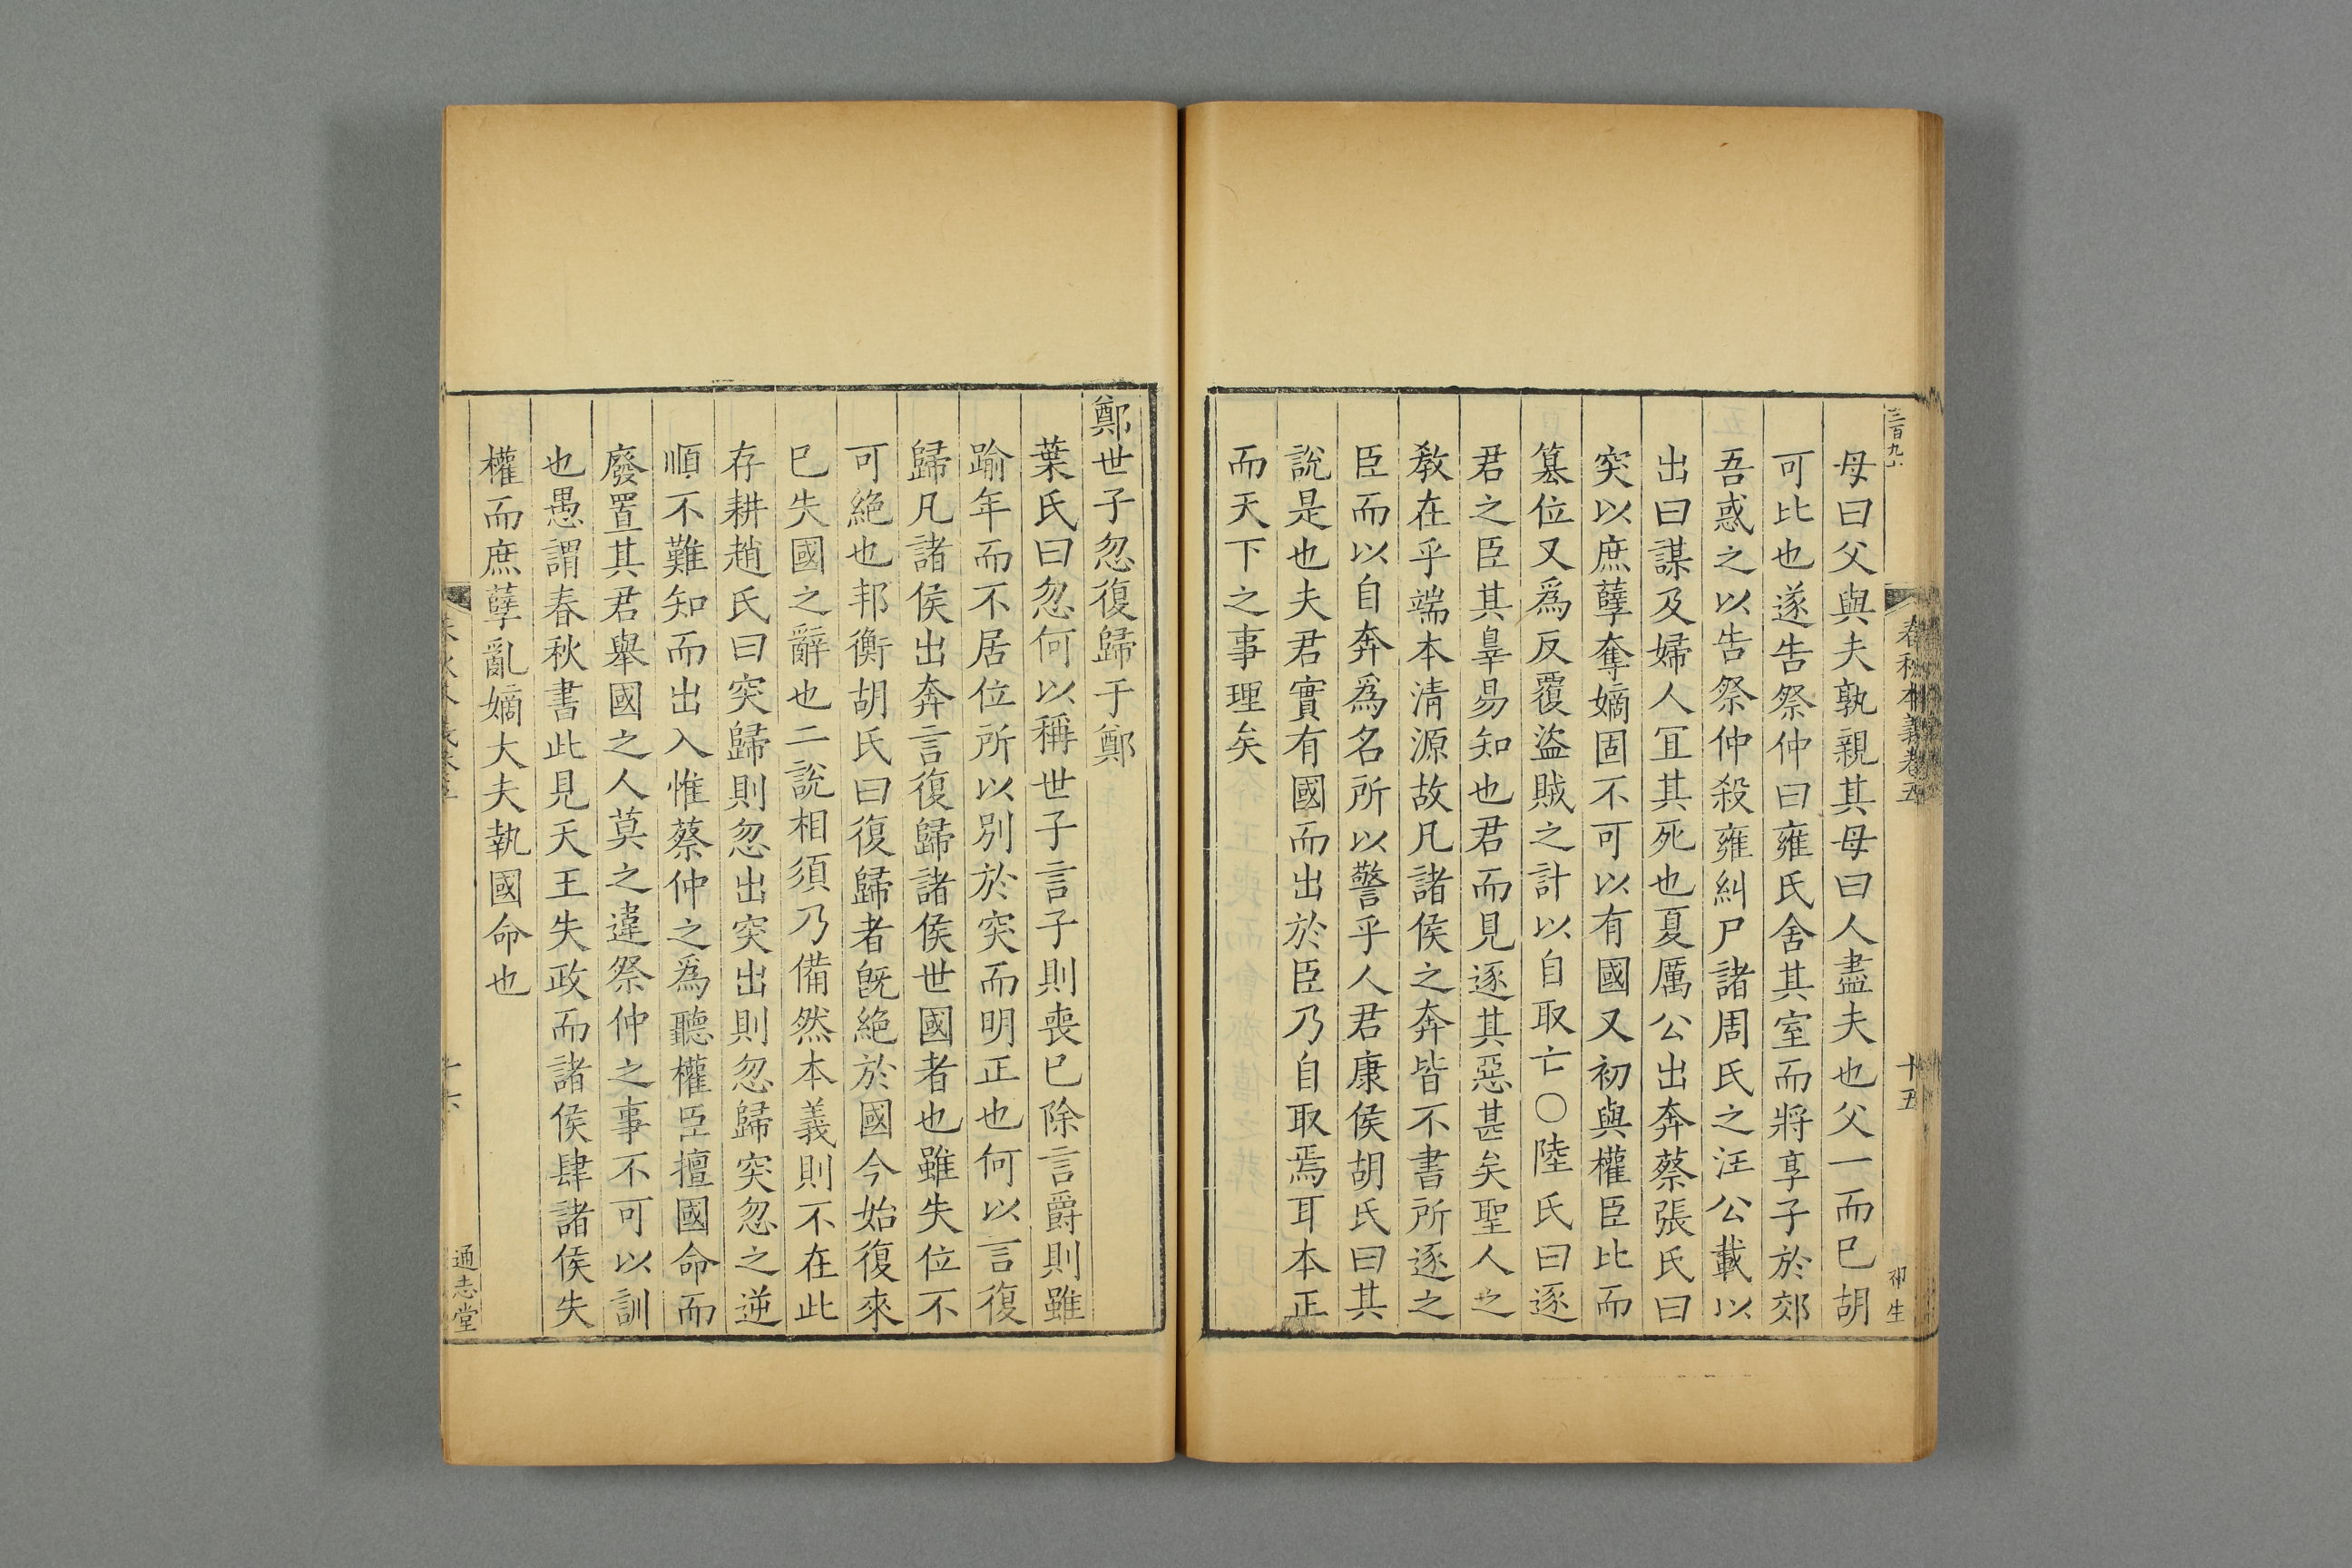 春秋本義卷五
十五
母曰父與夫孰親其母曰人盡夫也父一而已胡
可比也遂告祭仲曰雍氏舍其室而將享子於郊
吾惑之以告祭仲殺雍糾尸諸周氏之汪公載以
出曰謀及婦人宜其死也夏厲公出奔蔡張氏曰
突以庶孽奪嫡固不可以有國又初與權臣比而
簒位又爲反覆盜賊之計以自取亡○陸氏曰逐
君之臣其辠易知也君而見逐其惡甚矣聖人之
教在乎端本清源故凡諸侯之奔皆不書所逐之
臣而以自奔爲名所以警乎人君康侯胡氏曰其
說是也夫君實有國而出於臣乃自取焉耳本正
而天下之事理矣
鄭世子忽復歸于鄭
葉氏曰忽何以稱世子言子則喪已除言爵則雖
踰年而不居位所以別於突而明正也何以言復
歸凡諸侯出奔言復歸諸侯世國者也雖失位不
可絶也邦衡胡氏曰復歸者旣絶於國今始復來
已失國之辭也二說相須乃備然本義則不在此
存耕趙氏曰突歸則忽出突出則忽歸突忽之逆
順不難知而出入惟蔡仲之爲聽權臣擅國命而
廢置其君舉國之人莫之違祭仲之事不可以訓
也愚謂春秋書此見天王失政而諸侯肆諸侯失
權而庶孽亂嫡大夫執國命也
通志堂